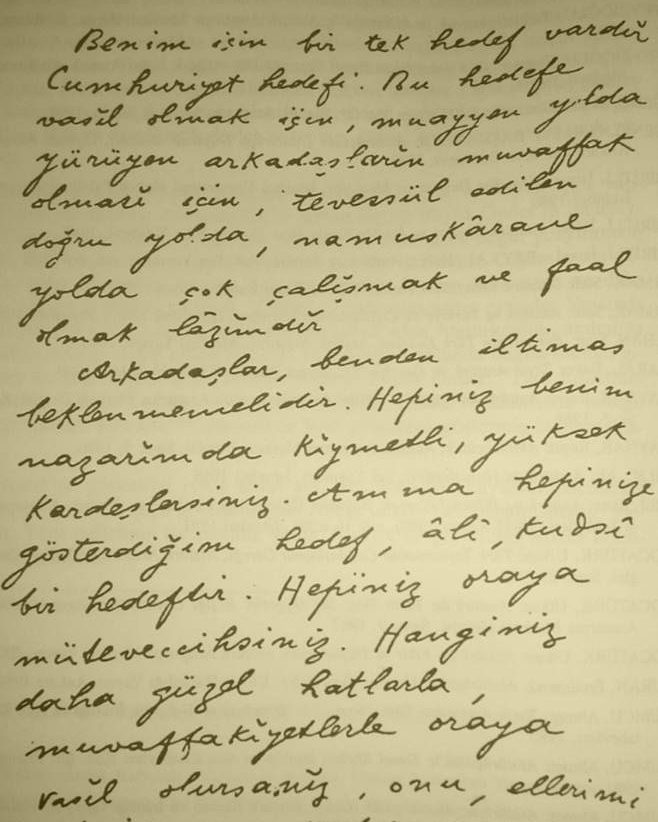 Benim için bir tek hedef vardır
Cumhuriyet hedefi. Bu hedefe
vasıl olmak için, muayyen yolda
yürüyen arkadaşların muvaffak
olması için, tevessül edilen
doğru yolda, namuskârane
yolda çok çalışmak ve faal
olmak lâzımdır
Arkadaşlar, benden iltimas
beklenmemelidir. Hepiniz benim
nazarımda kıymetli, yüksek
kardeşlersiniz. Amma hepinize
gösterdiğim hedef, âlî, kudsî
bir hedeftir. Hepiniz oraya
müteveccihsiniz. Hanginiz
daha güzel hatlarla,
muvaffakiyetlerle oraya
vasıl olursanız, onu, ellerimi